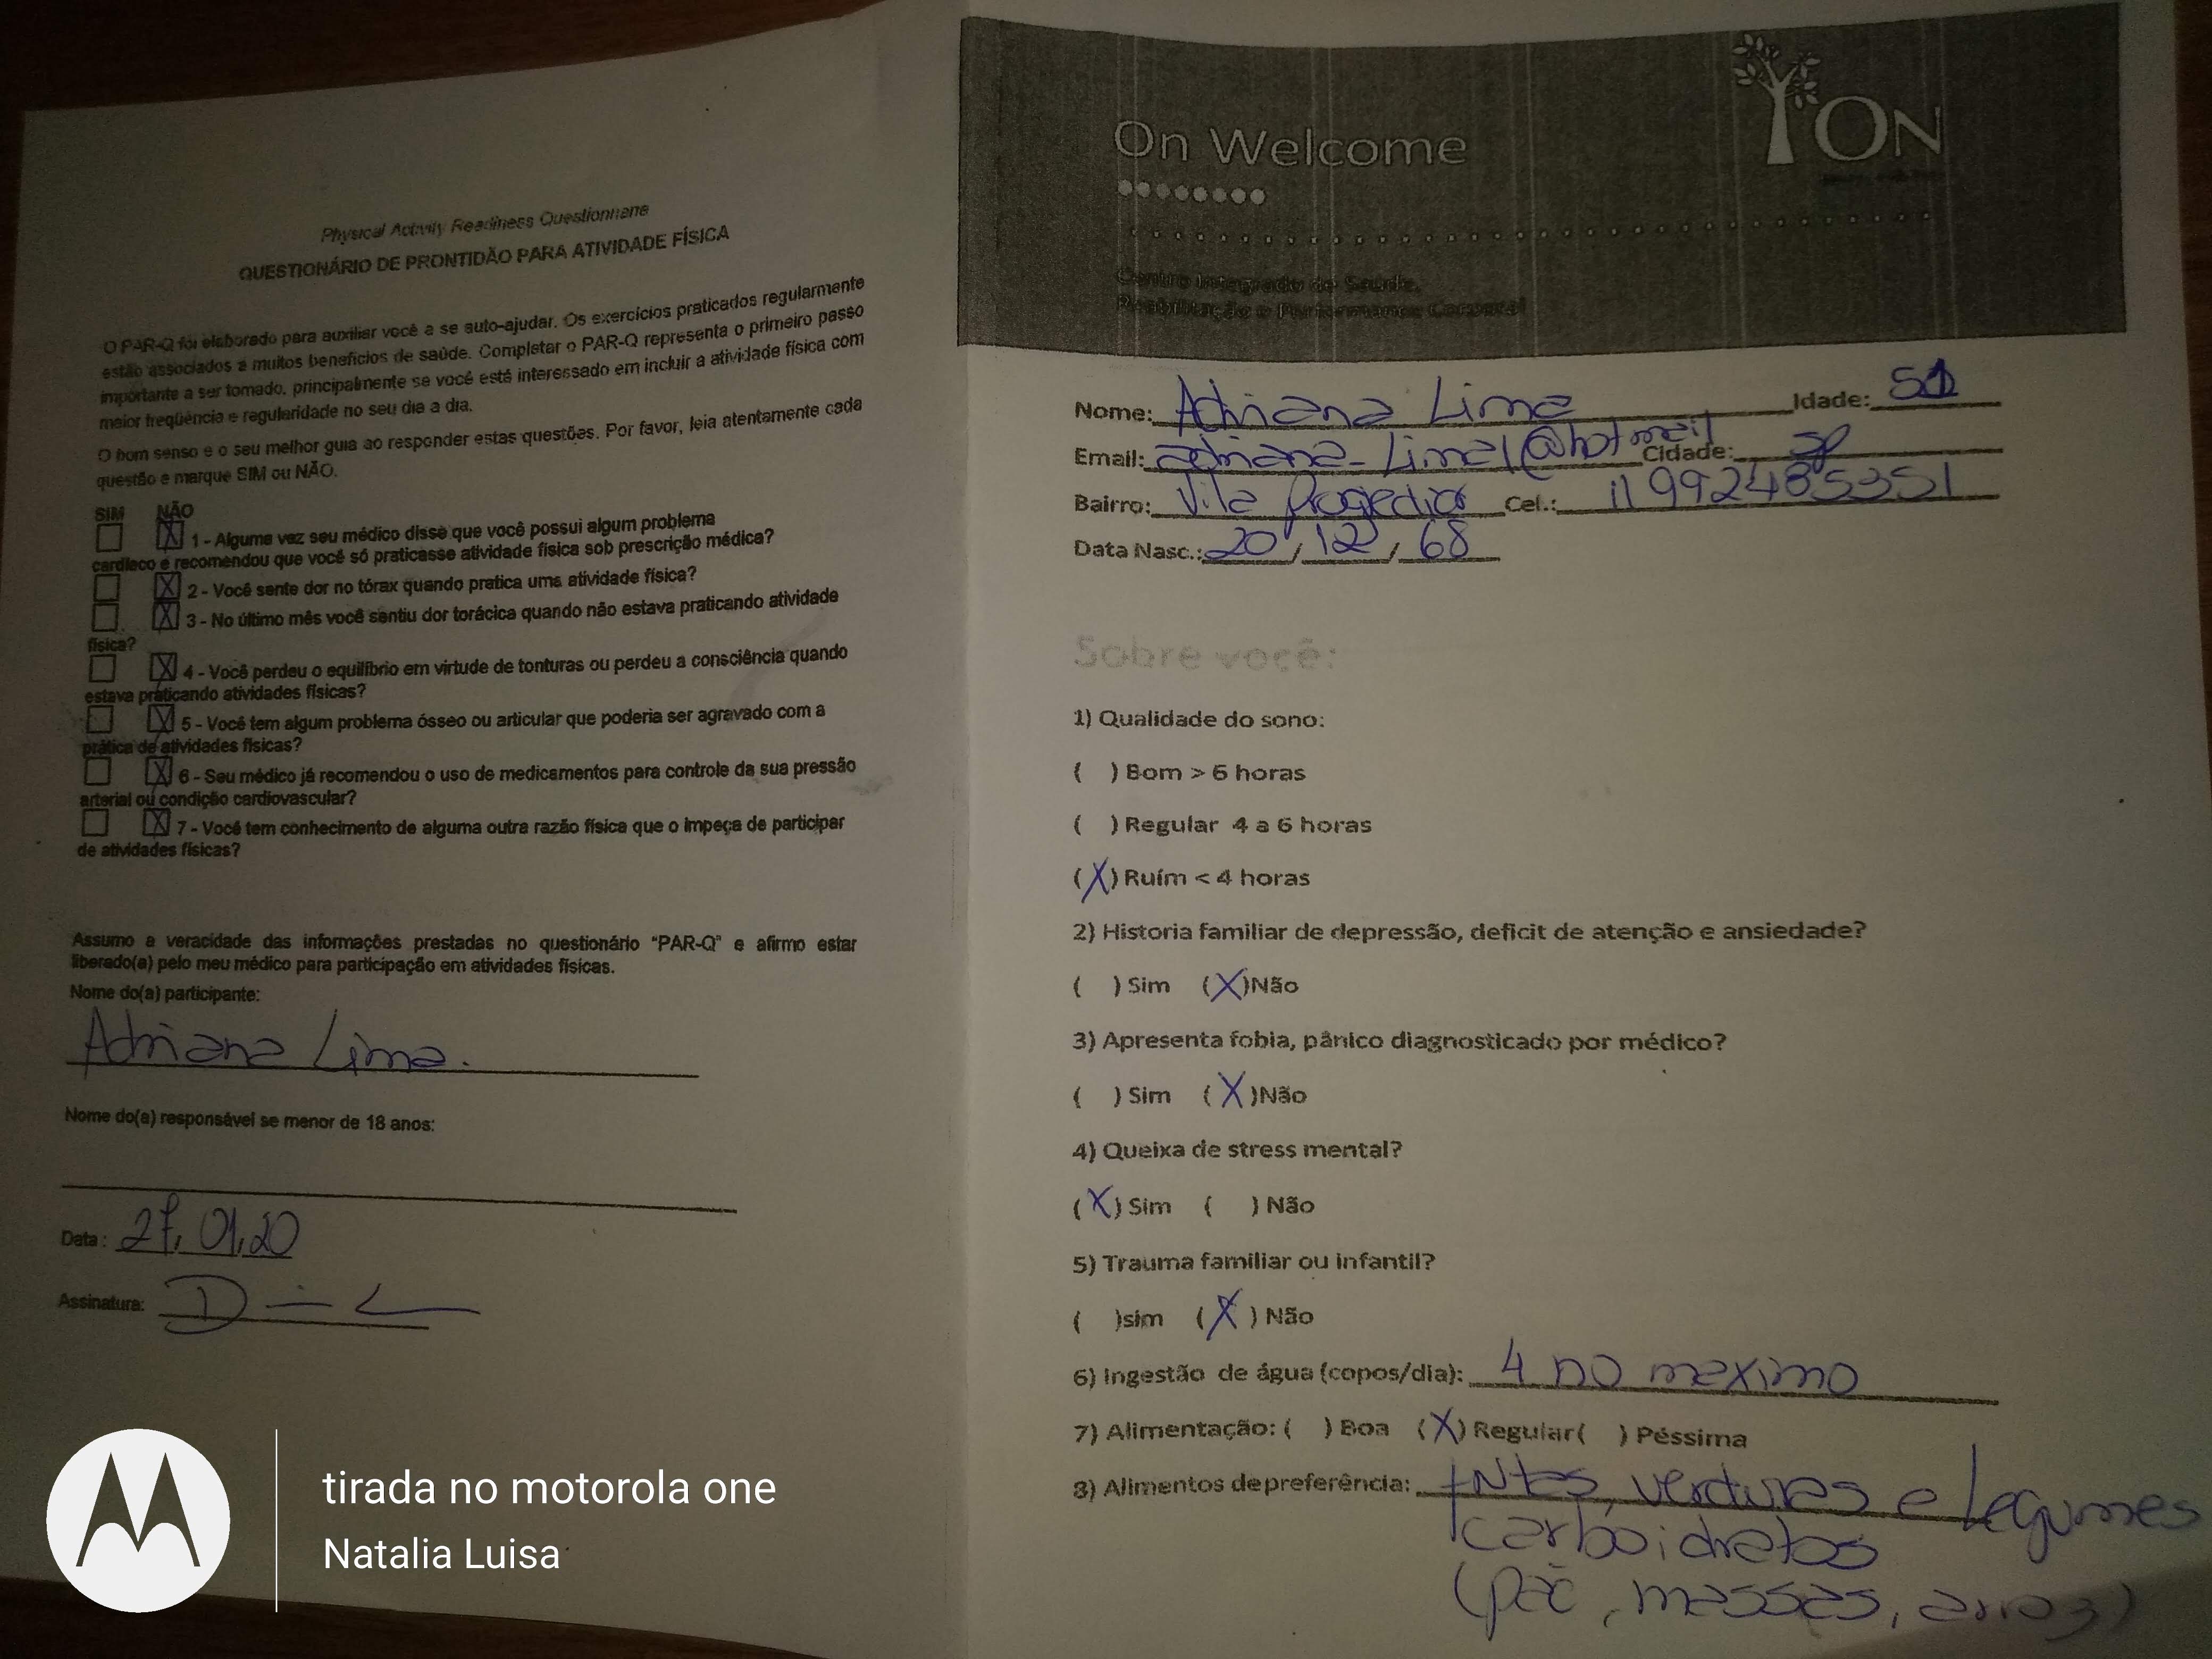 Physical Activity Readiness Questionnaire
QUESTIONÁRIO DE PRONTIDÃO PARA ATIVIDADE FÍSICA
O PAR-Q foi elaborado para auxiliar você a se auto-ajudar. Os exercícios praticados regularmente
estão associados a muitos benefícios de saúde. Completar o PAR-Q representa o primeiro passo
importante a ser tomado, principalmente se você está interessado em incluir a atividade física com
maior freqüência e regularidade no seu dia a dia.
O bom senso e o seu melhor guia ao responder estas questões. Por favor, leia atentamente cada
questão e marque SIM ou NÃO.
SIM NÃO
X 1 - Alguma vez seu médico disse que você possui algum problema
cardíaco e recomendou que você só praticasse atividade física sob prescrição médica?
X 2 - Você sente dor no tórax quando pratica uma atividade física?
X 3 - No último mês você sentiu dor torácica quando não estava praticando atividade
física?
X 4 - Você perdeu o equilíbrio em virtude de tonturas ou perdeu a consciência quando
estava praticando atividades físicas?
X 5 - Você tem algum problema ósseo ou articular que poderia ser agravado com a
prática de atividades físicas?
X 6 - Seu médico já recomendou o uso de medicamentos para controle da sua pressão
arterial ou condição cardiovascular?
X 7 - Você tem conhecimento de alguma outra razão física que o impeça de participar
de atividades físicas?
Assumo a veracidade das informações prestadas no questionário "PAR-Q" e afirmo estar
liberado(a) pelo meu médico para participação em atividades físicas.
Nome do(a) participante:
Adriana Lima.
Nome do(a) responsável se menor de 18 anos:
Data: 27,01,20
Assinatura:
On Welcome
ON
Centro Integrado de Saúde,
Reabilitação e Performance Corporal
Nome: Adriana Lima Idade: 51
Email: adriana_lima1@hotmail Cidade: SP
Bairro: Vila Progredior Cel.: 11 992485351
Data Nasc.: 20/12/68
Sobre você:
1) Qualidade do sono:
( ) Bom > 6 horas
( ) Regular 4 a 6 horas
(X) Ruím < 4 horas
2) Historia familiar de depressão, deficit de atenção e ansiedade?
( ) Sim (X)Não
3) Apresenta fobia, pânico diagnosticado por médico?
( ) Sim (X)Não
4) Queixa de stress mental?
(X) Sim ( ) Não
5) Trauma familiar ou infantil?
( )sim (X) Não
6) Ingestão de água (copos/dia): 4 no maximo
7) Alimentação: ( ) Boa (X) Regular( ) Péssima
8) Alimentos de preferência: frutas, verduras e legumes
carboidratos
(pão, massas, arroz)
tirada no motorola one
Natalia Luisa